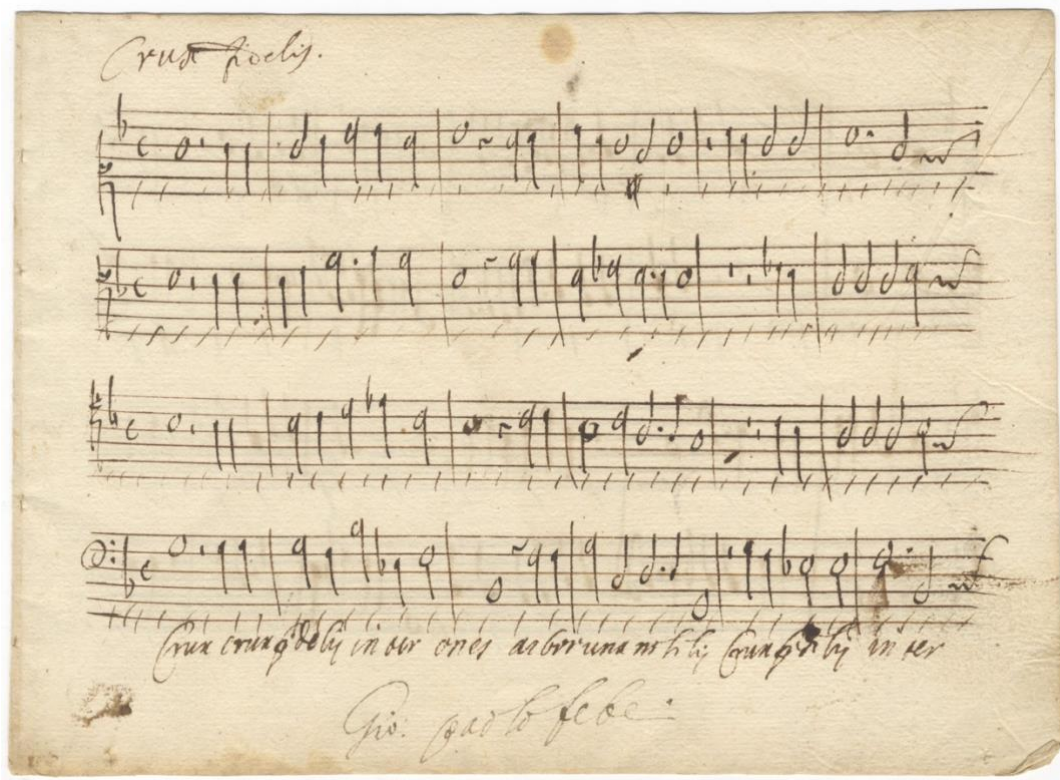 Crux fidelis.
Crux crux fidelis inter ones arborum una nobilis Crux fidelis inter
Gio: paolo febe